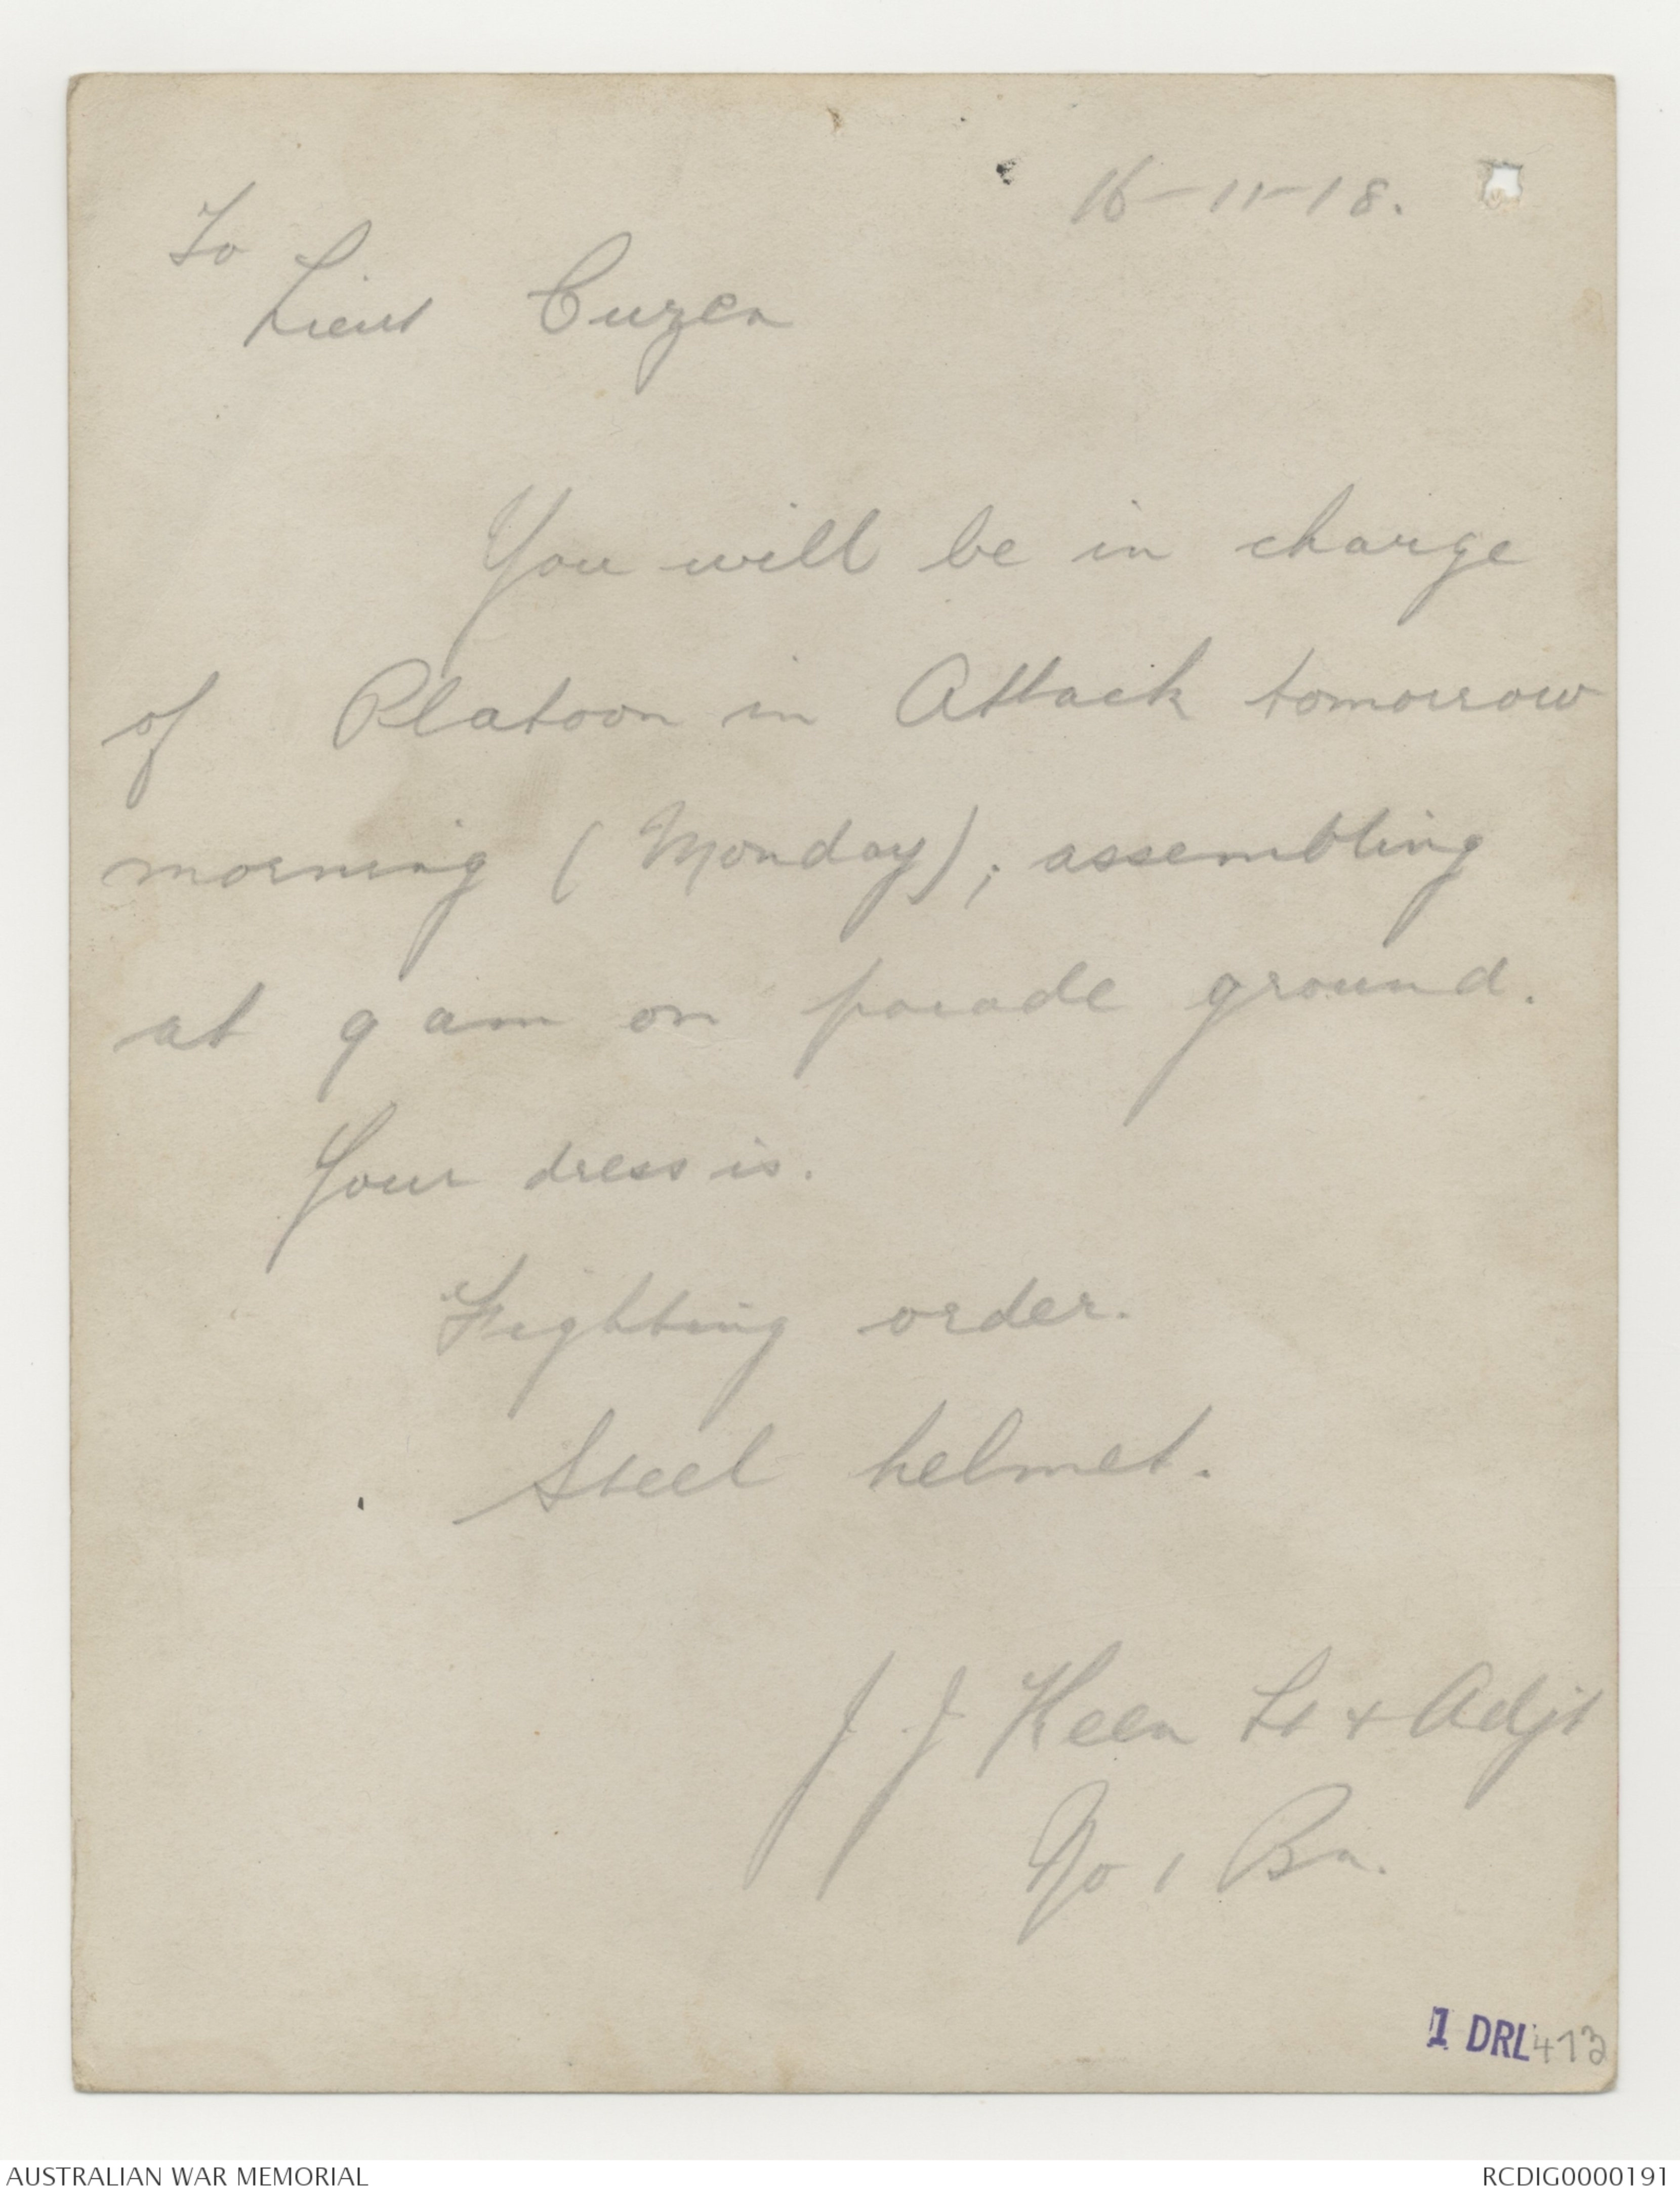 16-11-18.
To
Lieut Cuzen
You will be in charge
of Platoon in Attack tomorrow
morning (Monday); assembling
at 9 am on parade ground.
Your dress is.
Fighting order.
Steel helmet.
J J Keen Lt + Adjt
No 1 Bn.
1 DRL 473
AUSTRALIAN WAR MEMORIAL
RCDIG0000191